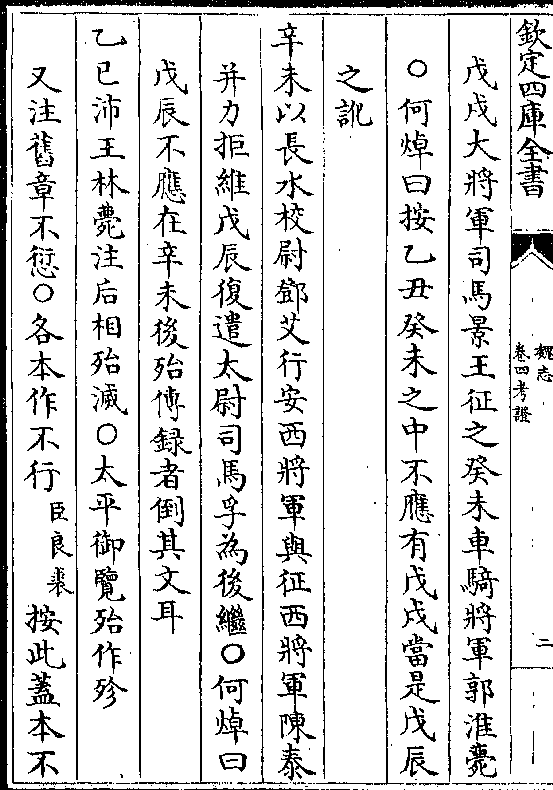 欽定四庫全書
魏志
卷四考證
二
戊戌大將軍司馬景王征之癸未車騎將軍郭淮薨
○何焯曰按乙丑癸未之中不應有戊戌當是戊辰
之訛
辛未以長水校尉鄧艾行安西將軍與征西將軍陳泰
并力拒維戊辰復遣太尉司馬孚為後繼○何焯曰
戊辰不應在辛未後殆傳錄者倒其文耳
乙巳沛王林薨注后相殆滅○太平御覽殆作殄
又注舊章不愆○各本作不行臣良裘按此蓋本不